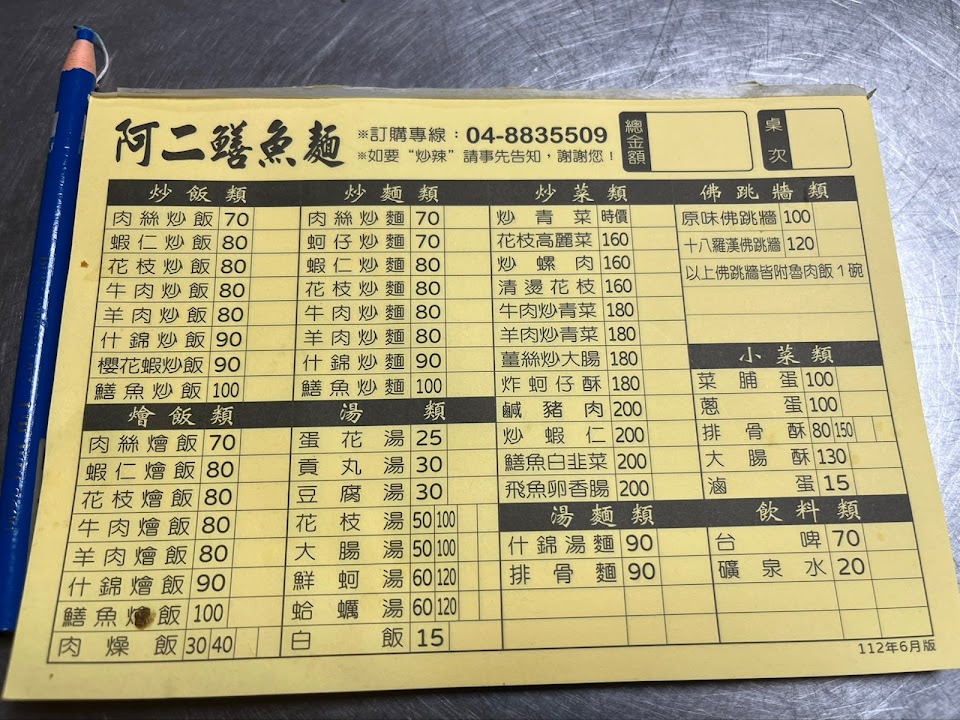 阿二鱔魚麵
※訂購專線：04-8835509
※如要“炒辣”請事先告知，謝謝您！
總金額
桌次
炒飯類
肉絲炒飯 70
蝦仁炒飯 80
花枝炒飯 80
牛肉炒飯 80
羊肉炒飯 80
什錦炒飯 90
櫻花蝦炒飯 90
鱔魚炒飯 100
燴飯類
肉絲燴飯 70
蝦仁燴飯 80
花枝燴飯 80
牛肉燴飯 80
羊肉燴飯 80
什錦燴飯 90
鱔魚燴飯 100
肉燥飯 30 40
炒麵類
肉絲炒麵 70
蚵仔炒麵 70
蝦仁炒麵 80
花枝炒麵 80
牛肉炒麵 80
羊肉炒麵 80
什錦炒麵 90
鱔魚炒麵 100
湯類
蛋花湯 25
貢丸湯 30
豆腐湯 30
花枝湯 50 100
大腸湯 50 100
鮮蚵湯 60 120
蛤蠣湯 60 120
白飯 15
炒菜類
炒青菜 時價
花枝高麗菜 160
炒螺肉 160
清燙花枝 160
牛肉炒青菜 180
羊肉炒青菜 180
薑絲炒大腸 180
炸蚵仔酥 180
鹹豬肉 200
炒蝦仁 200
鱔魚白韭菜 200
飛魚卵香腸 200
湯麵類
什錦湯麵 90
排骨麵 90
佛跳牆類
原味佛跳牆 100
十八羅漢佛跳牆 120
以上佛跳牆皆附魯肉飯1碗
小菜類
菜脯蛋 100
蔥蛋 100
排骨酥 80 150
大腸酥 130
滷蛋 15
飲料類
台啤 70
礦泉水 20
112年6月版